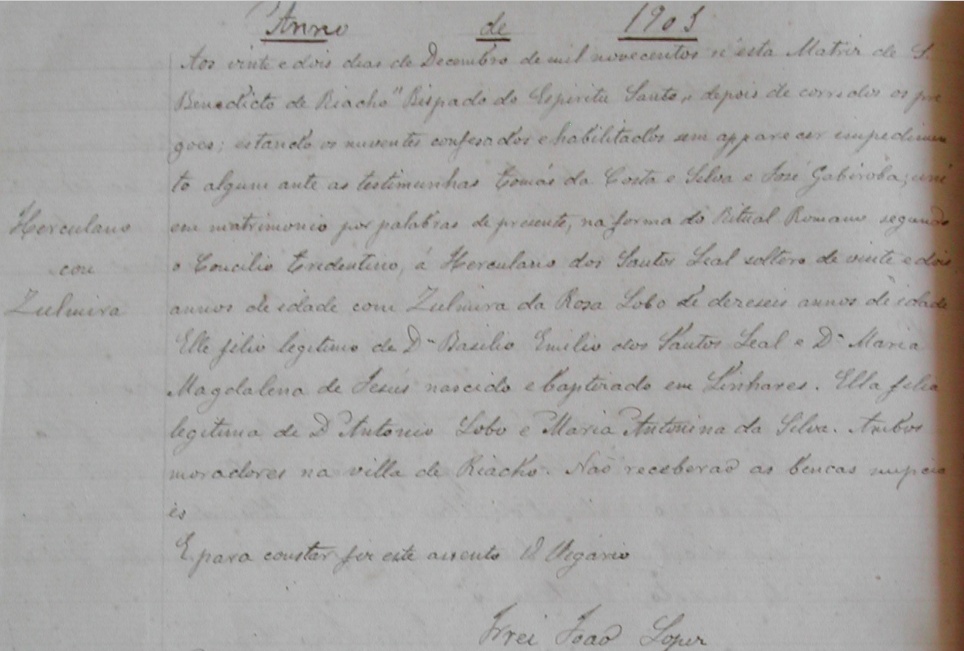 Anno de 1903
Aos vinte e dois dias de Decembro de mil novecentos n'esta Matriz de S.
Benedicto de Riacho" Bispado do Espiritu Santo, depois de corridos os pre
goes; estando os nuventes confesados e habilitados sem apparecer empedimen
to algum ante as testimunhas Tomás da Costa e Silva e José Gabiroba; uni
em matrimonio por palabras de presente, na forma do Ritual Romano segundo
Herculano
o Concilio Tredentino, á Herculano dos Santos Leal soltero de vinte e dois
con
annos de idade com Zulmira da Rosa Lobo de dezeseis annos de idade
Zulmira
Elle filio legitimo de Dn Basilio Emilio dos Santos Leal e Dna Maria
Magdalena de Jesús nascido e baptizado em Linhares. Ella filia
legitima de D Antonio Lobo e Maria Antonina da Silva. Ambos
moradores na villa de Riacho. Não receberão as bencas nupcia
es
E para constar fiz este assento O Vigario
Frei João Lopez